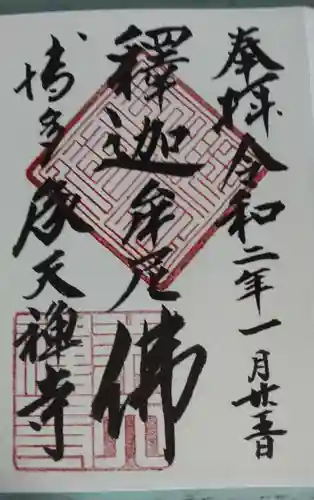 奉拝 令和二年一月廿五日
釋迦牟尼佛
博多承天禅寺